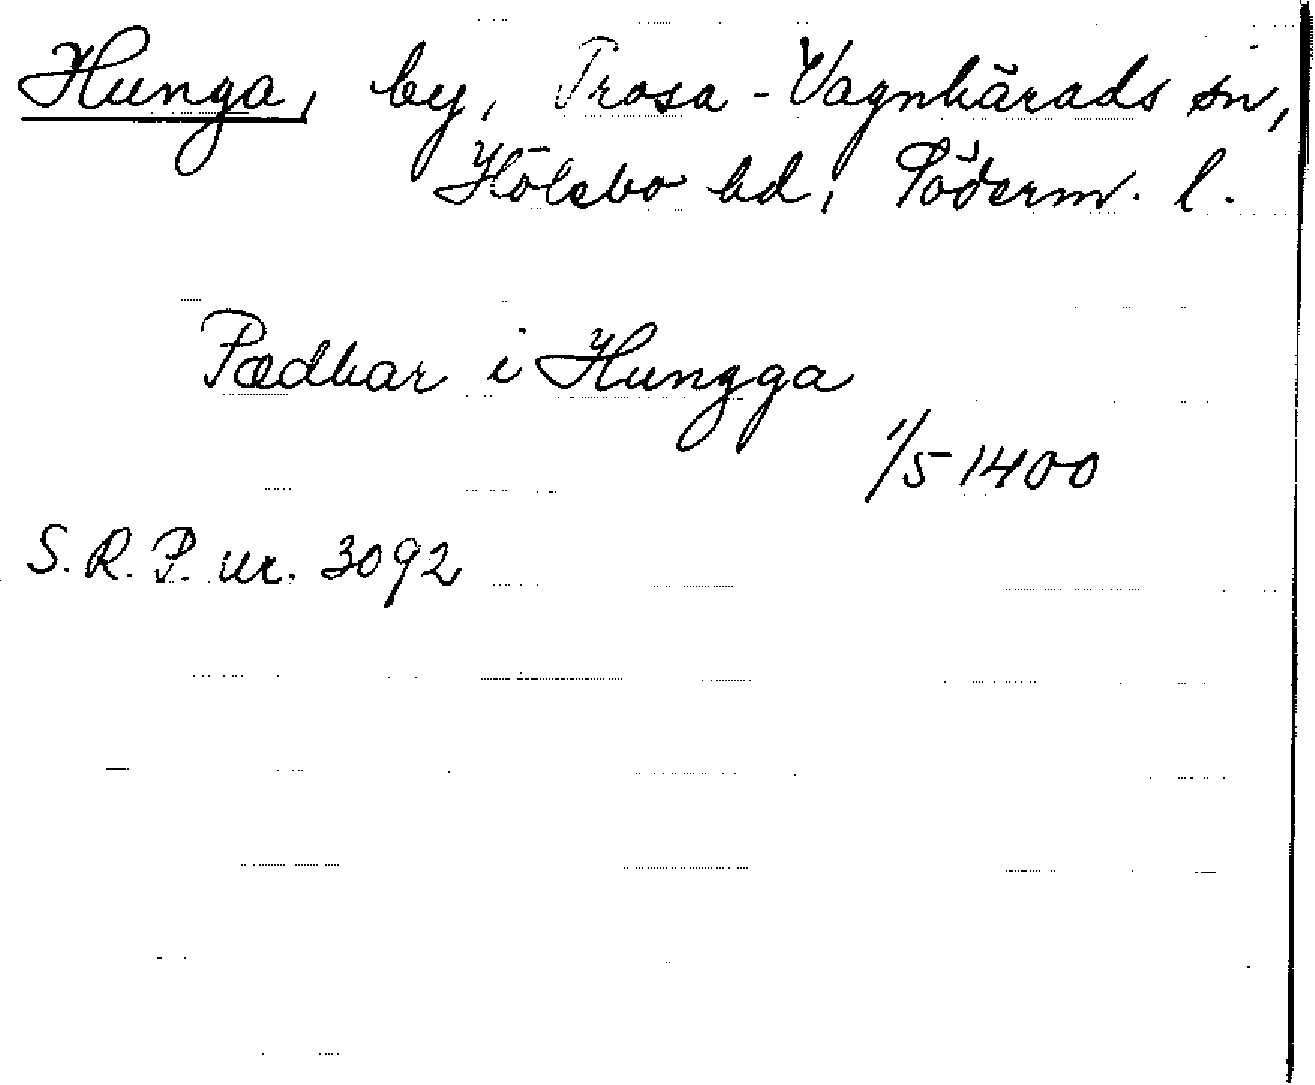 Hunga, by, Trosa-Vagnhärads sn,
Hölebo hd, Söderm. l.
Pædhar i Hungga
1/5 1400
S.R.P. nr. 3092